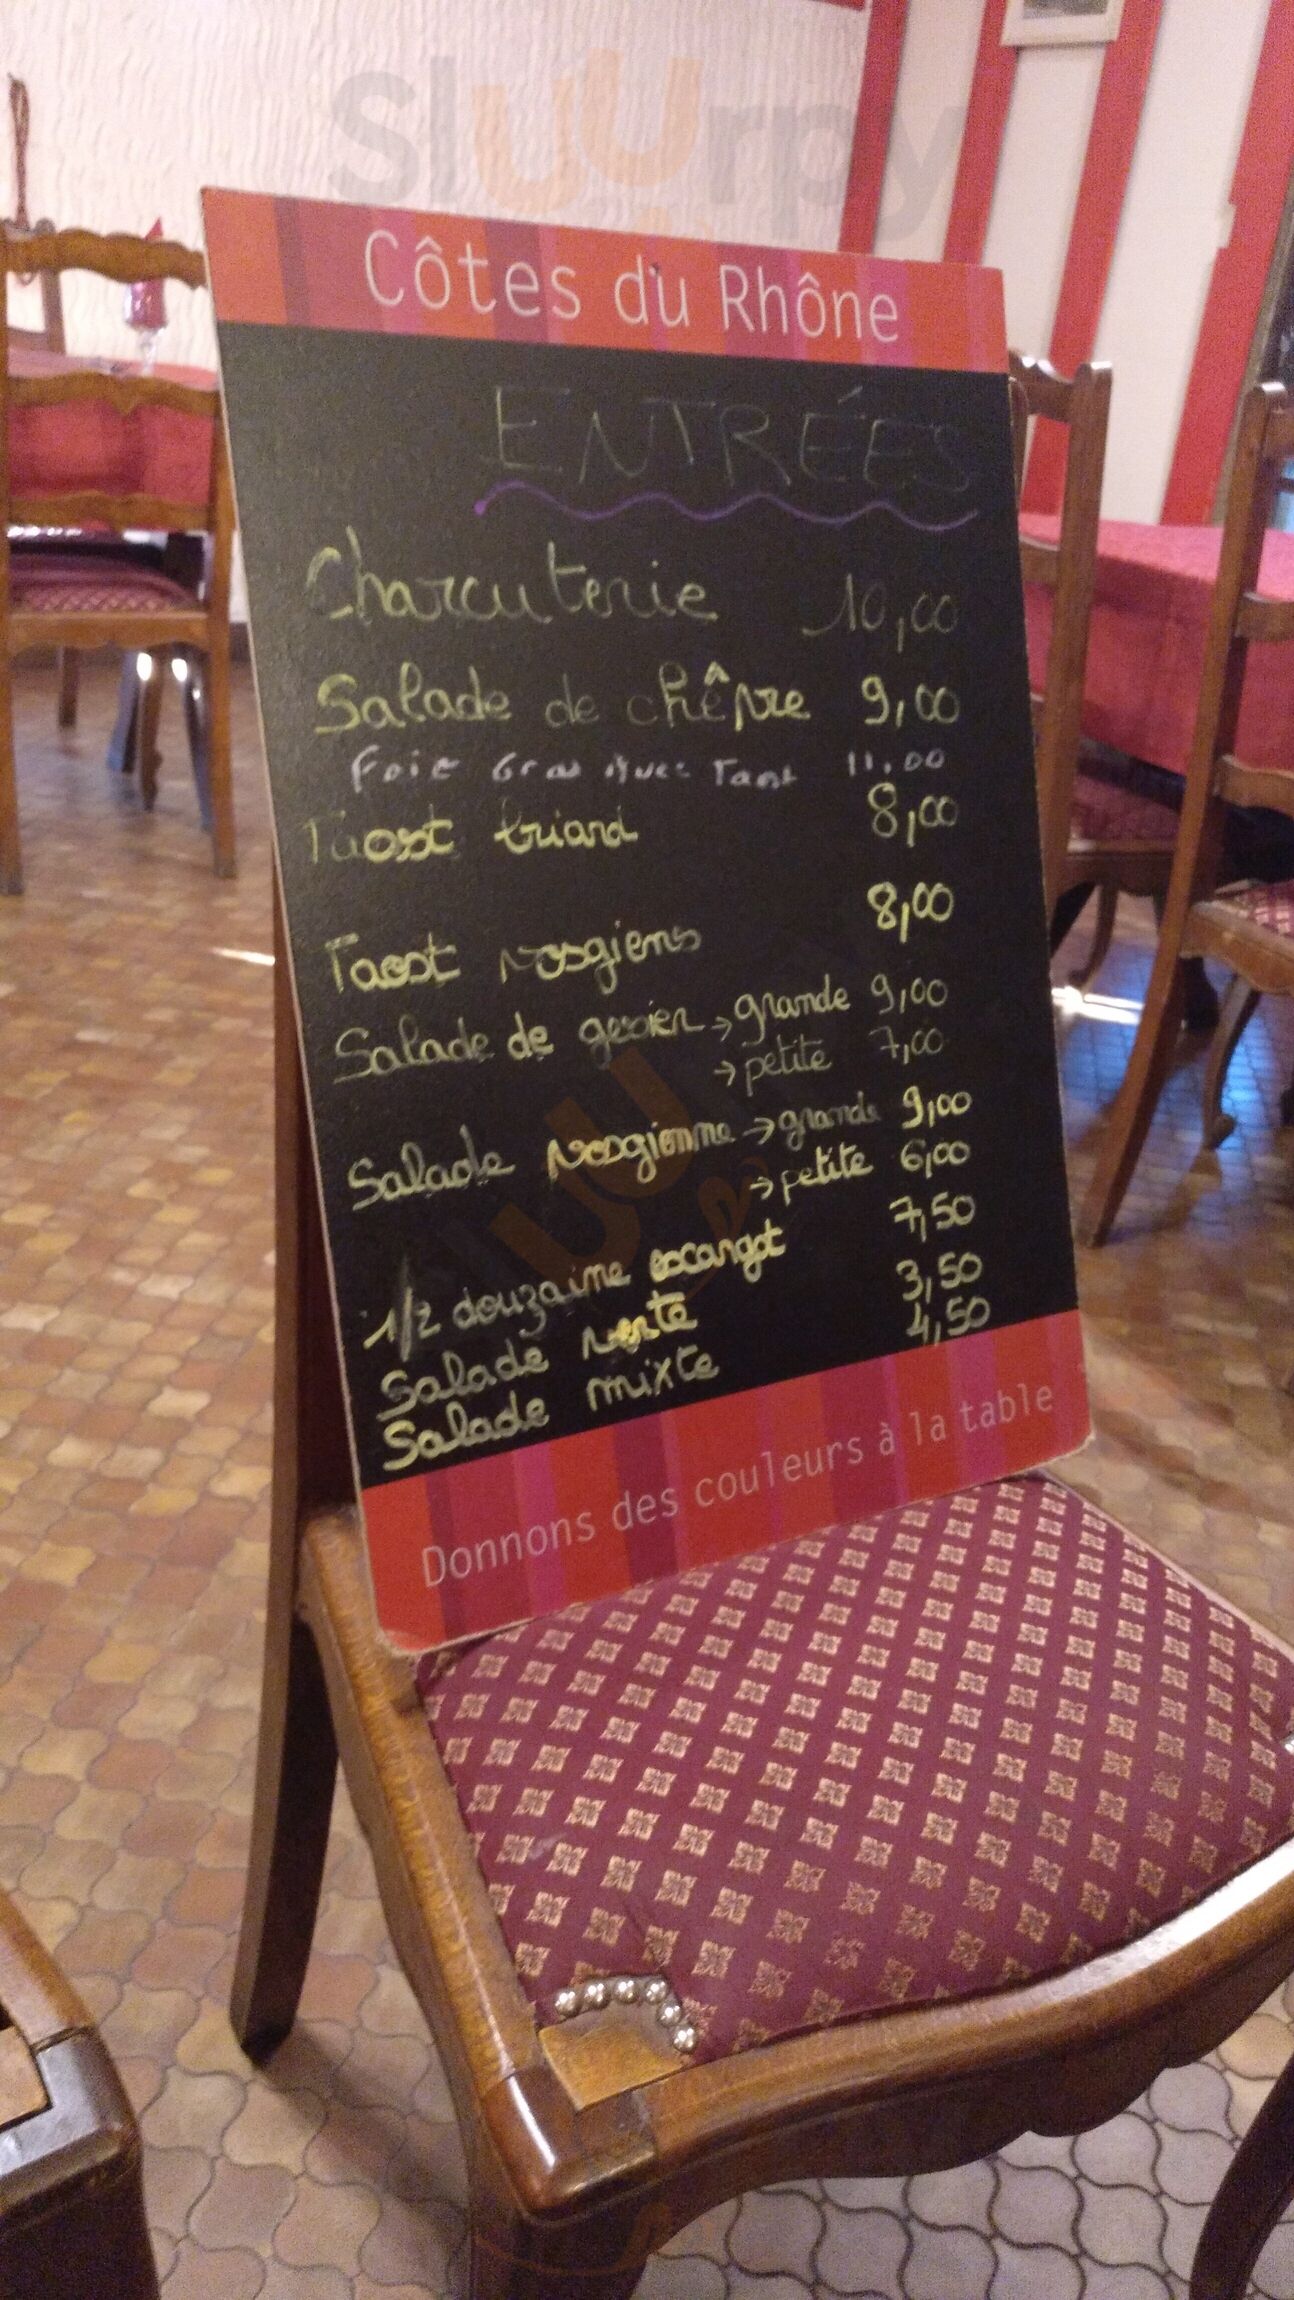 Sluurpy
Côtes du Rhône
ENTRÉES
Charcuterie 10,00
Salade de chêvre 9,00
Foie Gras Avec Tast 11.00
Taost briard 8,00
Taost vosgiens 8,00
Salade de gesier → grande 9,00
→ petite 7,00
Salade vosgienne → grande 9,00
→ petite 6,00
1/2 douzaine escargot 7,50
Salade verte 3,50
Salade mixte 4,50
Donnons des couleurs à la table